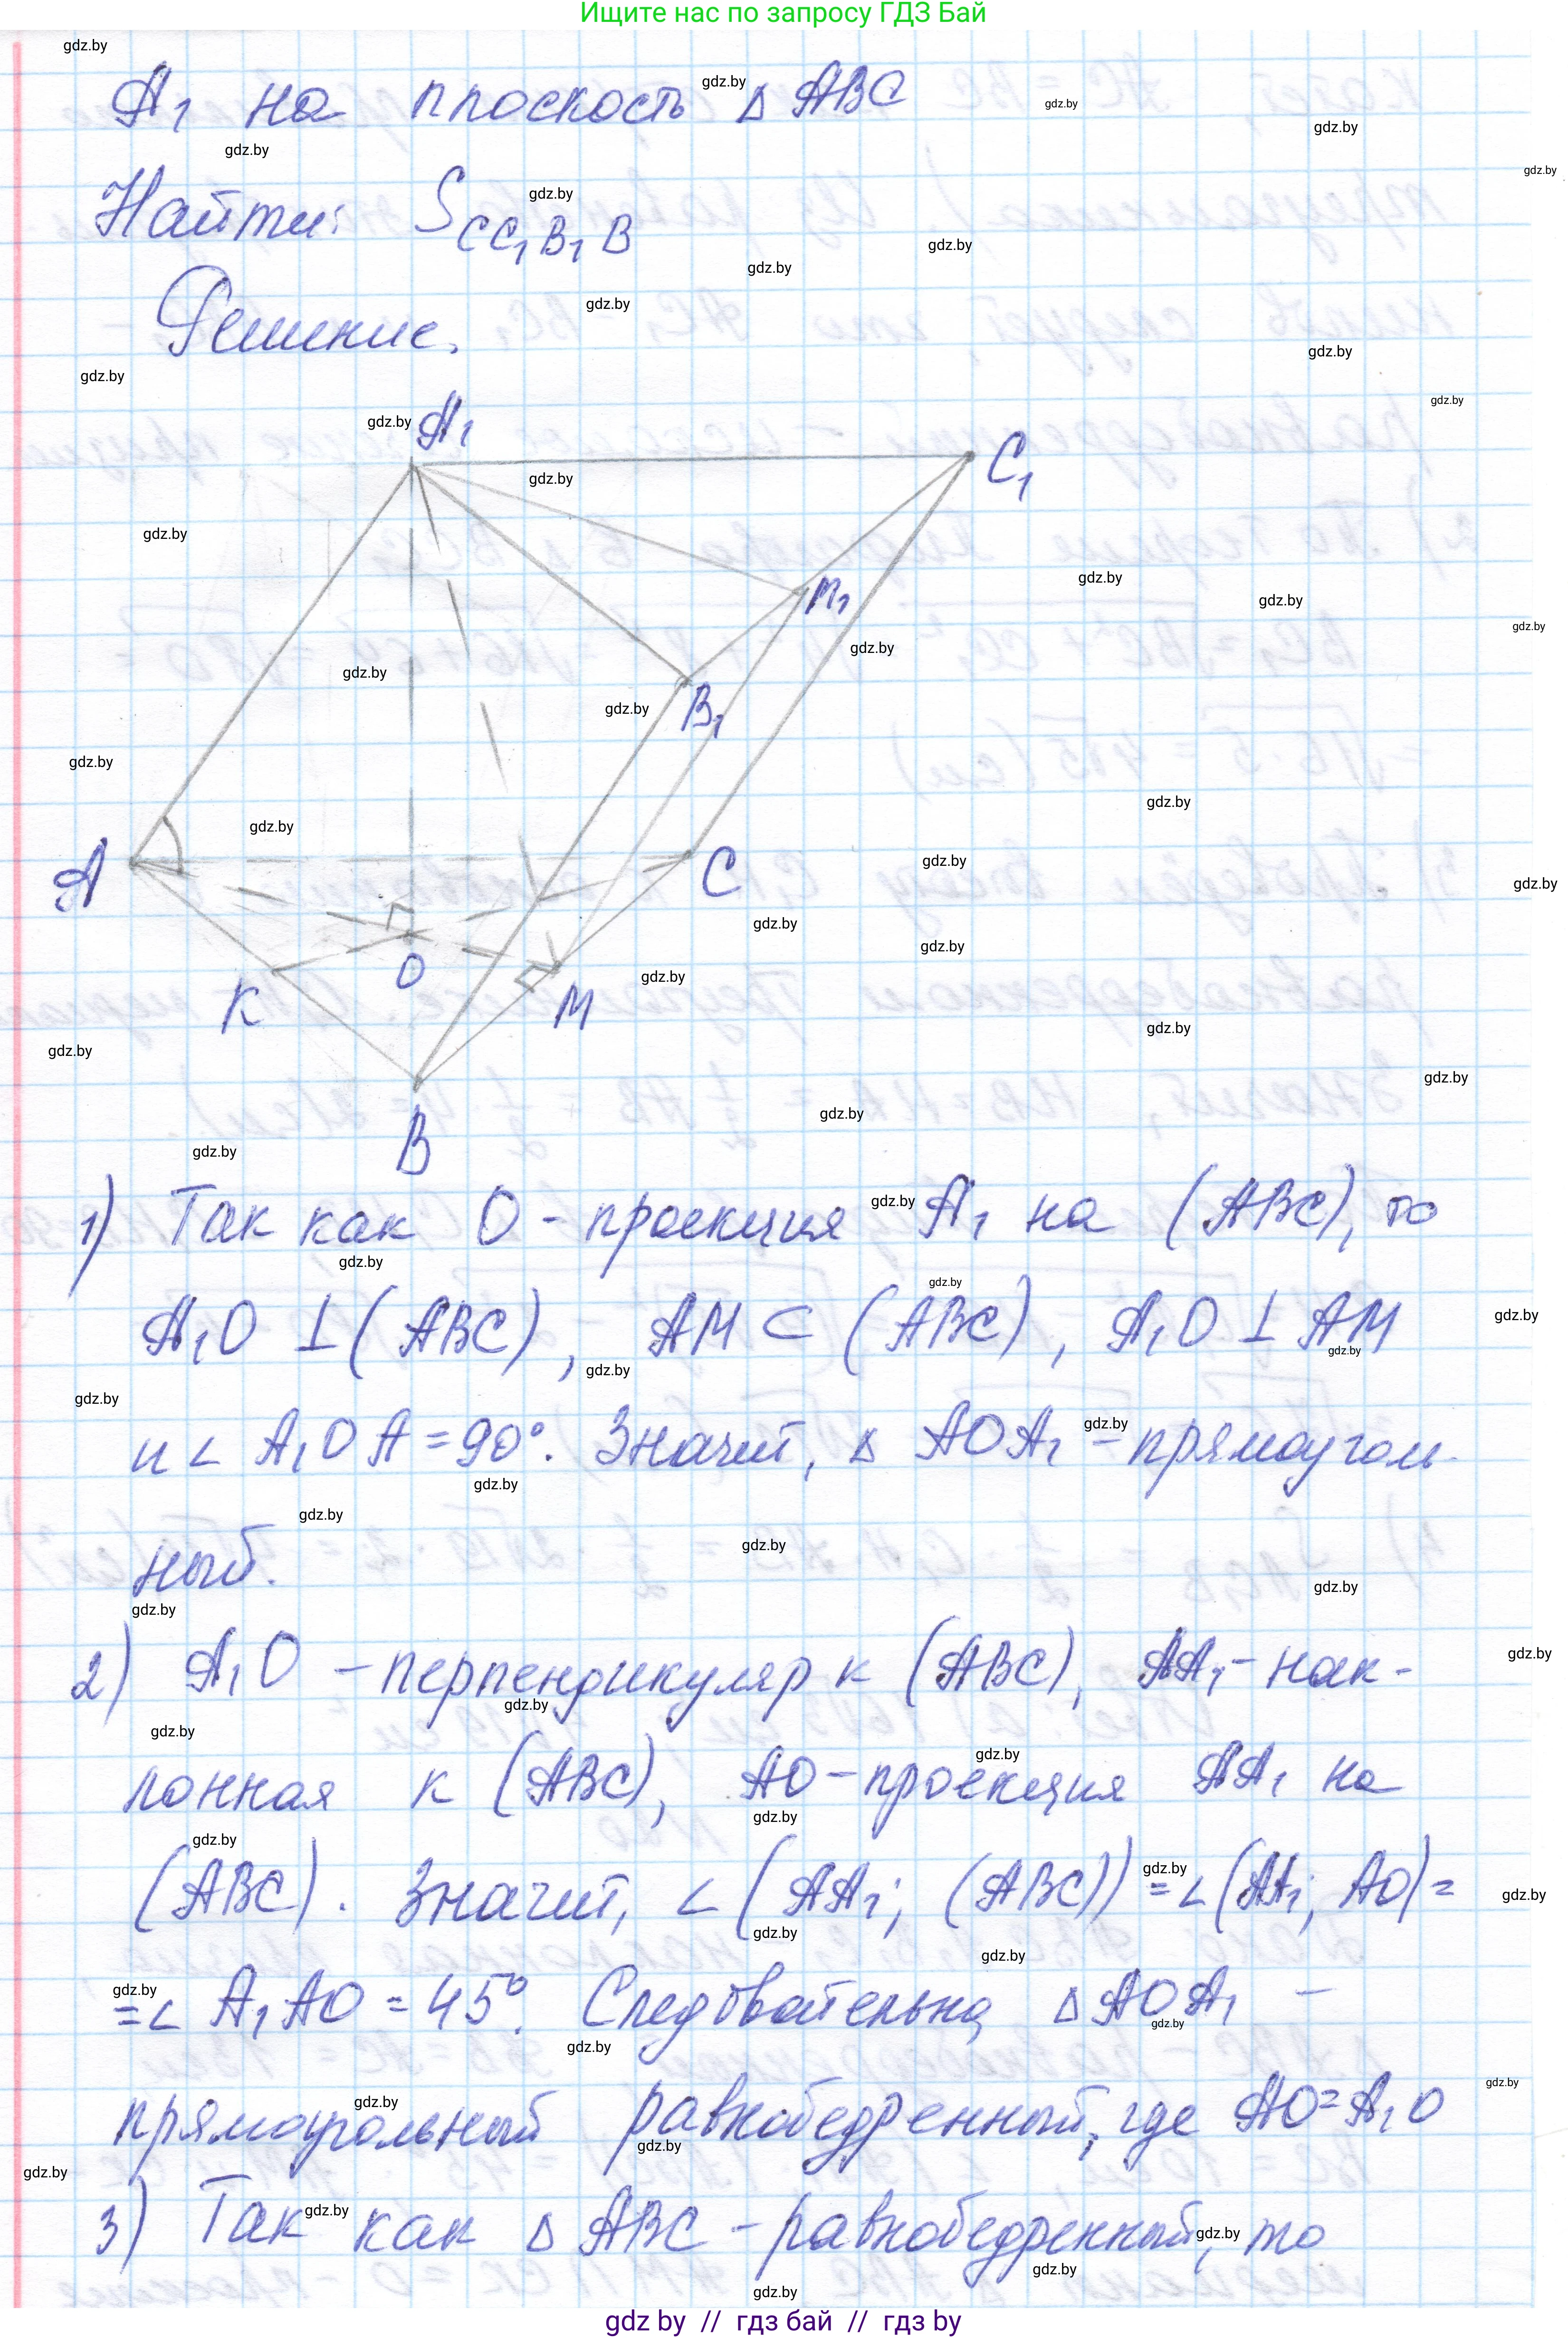 Ищите нас по запросу ГДЗ Бай
A₁ на плоскость Δ ABC
Найти: S CC₁B₁B
Решение.
A₁
C₁
M₁
B₁
A
C
O
K
M
B
1) Так как O - проекция A₁ на (ABC), то
A₁O ⊥ (ABC), AM ⊂ (ABC), A₁O ⊥ AM
и ∠ A₁OA = 90°. Значит, Δ AOA₁ - прямоуголь-
ный.
2) A₁O - перпендикуляр к (ABC), AA₁ - нак-
лонная к (ABC), AO - проекция AA₁ на
(ABC). Значит, ∠(AA₁; (ABC)) = ∠(AA₁; AO) =
= ∠ A₁AO = 45°. Следовательно, Δ AOA₁ -
прямоугольный равнобедренный, где AO = A₁O
3) Так как Δ ABC - равнобедренный, то
gdz by // гдз бай // гдз by